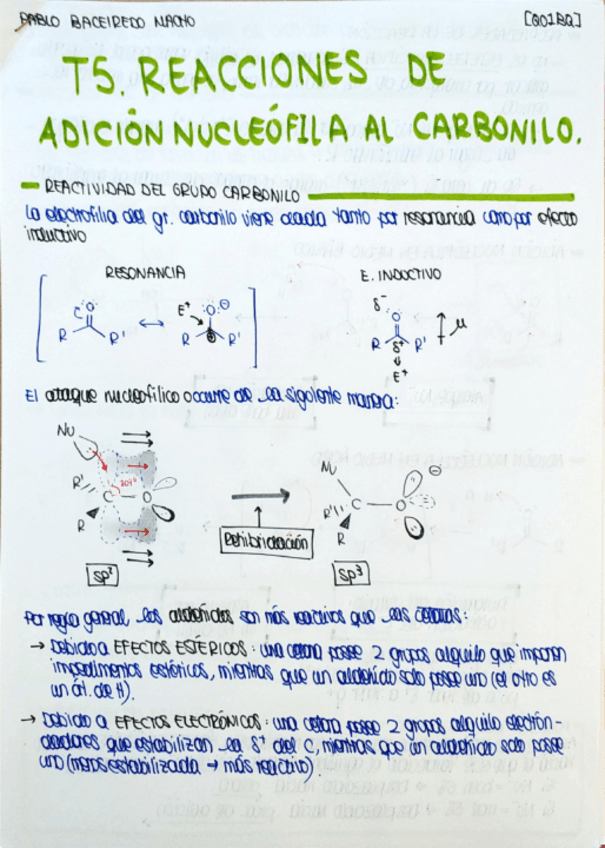 PABLO BACEIREDO MACHO [QOIBQ]
T5. REACCIONES DE
ADICIÓN NUCLEÓFILA AL CARBONILO.
REACTIVIDAD DEL GRUPO CARBONILO
La electrofilia del gr. carbonilo viene dada tanto por resonancia como por efecto
inductivo
RESONANCIA E. INDUCTIVO
O E+ O ⊖ δ- O
R R' ↔ R ⊕ R' R δ+ R' μ
E+
El ataque nucleofílico ocurre de la siguiente manera:
Nu Nu ⊖
R' C 107° O R' C O
R R
Rehibridación
sp² sp³
Por regla general, los aldehídos son más reactivos que las cetonas:
→ Debido a EFECTOS ESTÉRICOS: una cetona posee 2 grupos alquilo que imponen
impedimentos estéricos, mientras que un aldehído solo posee uno (el otro es
un át. de H).
→ Debido a EFECTOS ELECTRÓNICOS: una cetona posee 2 grupos alquilo electrón-
dadores que estabilizan la δ+ del C, mientras que un aldehído solo posee
uno (menos estabilizada → más reactivo).